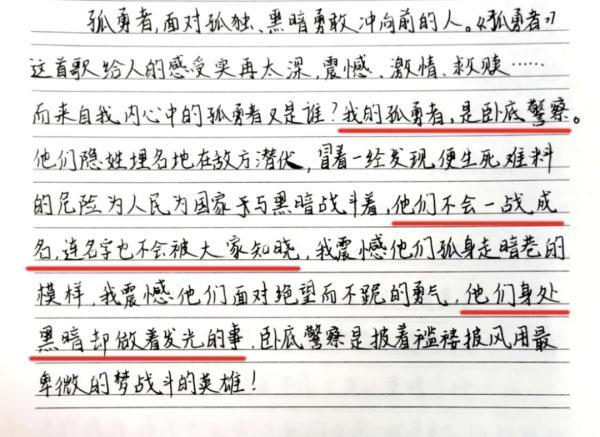 孤勇者,面对孤独、黑暗勇敢冲向前的人。《孤勇者》
这首歌给人的感受实再太深,震憾、激情、救赎……
而来自我内心中的孤勇者又是谁?我的孤勇者,是卧底警察。
他们隐姓埋名地在敌方潜伏,冒着一经发现便生死难料
的危险为人民为国家于与黑暗战斗着,他们不会一战成
名,连名字也不会被大家知晓,我震憾他们孤身走暗巷的
模样,我震憾他们面对绝望而不跪的勇气,他们身处
黑暗却做着发光的事,卧底警察是披着褴褛披风用最
卑微的梦战斗的英雄!